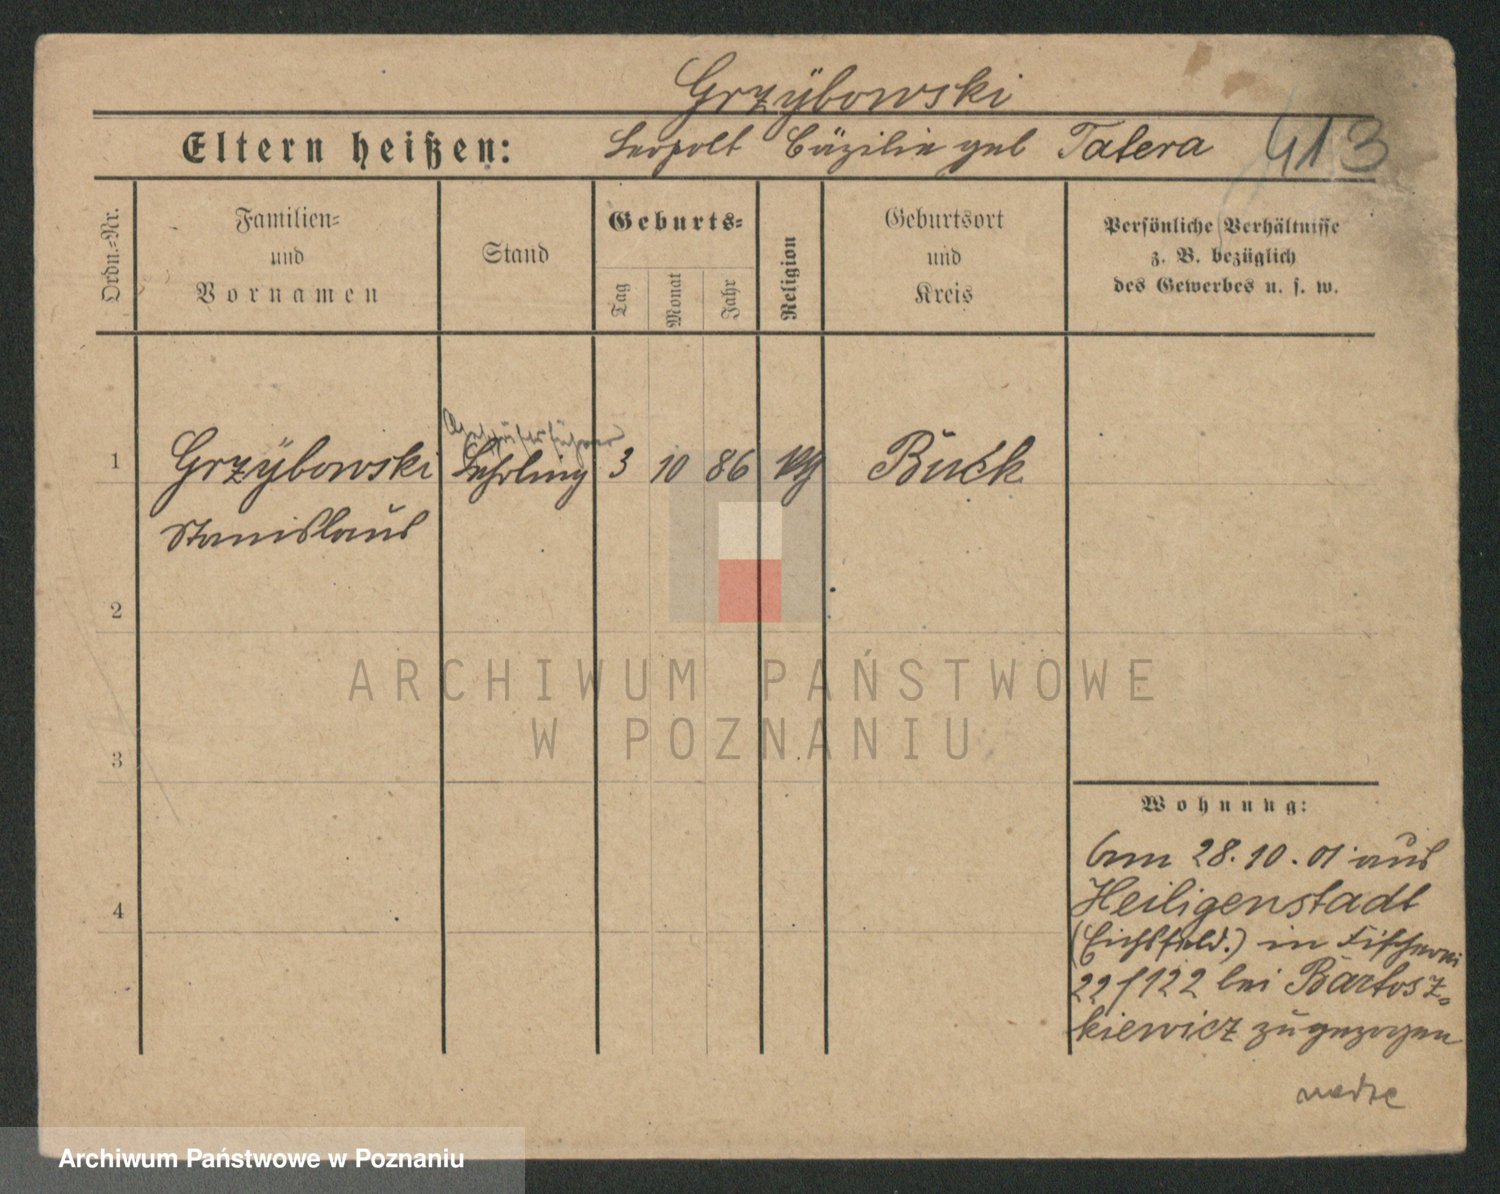 Grzÿbowski
Eltern heißen: Leopolt Cäzilie geb Tatera 413
Ordn.=Nr.
Familien=
und
Vornamen
Stand
Geburts=
Tag
Monat
Jahr
Religion
Geburtsort
und
Kreis
Persönliche Verhältnisse
z. B. bezüglich
des Gewerbes u. s. w.
1 Grzÿbowski Lehrling 3 10 86 Buck
Stanislaus
2
3
4
Wohnung:
Am 28.10.01 aus
Heiligenstadt
(Eichsfeld.) in Fischerei
22/122 bei Bartosz=
kiewicz zugezogen
ARCHIWUM PAŃSTWOWE
W POZNANIU
Archiwum Państwowe w Poznaniu